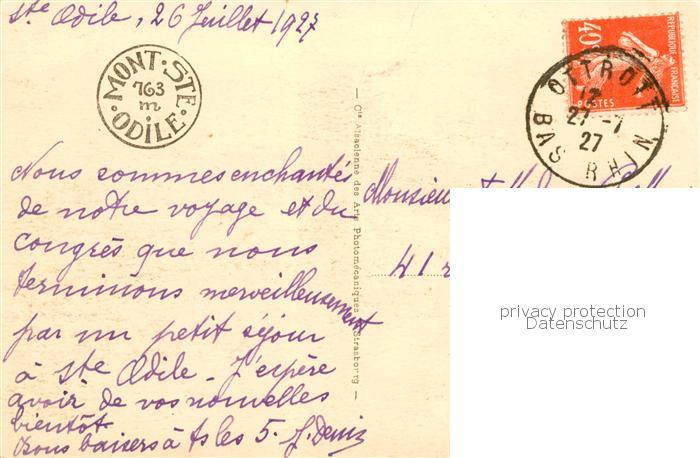 Ste Odile, 26 Juillet 1927
MONT·STE·ODILE·
763
m
Nous sommes enchantés
de notre voyage et du
Congrès que nous
terminons merveilleusement
par un petit séjour
à Ste Odile - J'espère
avoir de vos nouvelles
bientôt.
Bons baisers à ts les 5. J. Denis
— Cie Alsacienne des Arts Photomécaniques Strasbourg —
REPUBLIQUE FRANÇAISE
40c
POSTES
OTTROTT
27-7
27
BAS RHIN
Monsieur
41 r
privacy protection
Datenschutz